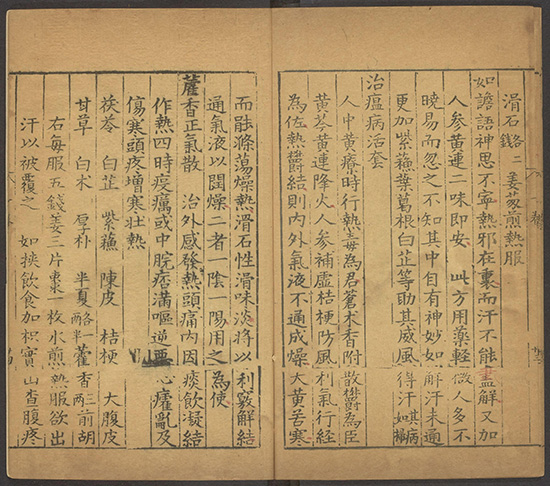 滑石二錢 姜葱煎熱服
如譫語神思不寧熱邪在裏而汗不能盡解又加
人參黃連二味即安 此方用藥輕微人多不
曉易而忽之不知其中自有神妙如解汗未遍
更加紫蘓葉葛根白芷等助其威風得汗如掃病
治瘟病活套
人中黃療時行熱毒為君蒼术香附散欝為臣
黃芩黃連降火人參補虛桔梗防風利氣行經
為佐熱欝結則內外氣液不通成燥大黃苦寒
而能滌蕩燥熱滑石性滑味淡將以利竅解結
通氣液以閏燥二者一陰一陽用之為使
藿香正氣散 治外感發熱頭痛內因痰飲凝結
作熱四時疫癘或中脘痞滿嘔逆惡心癨亂及
傷寒頭疼増寒壯熱
茯苓 白芷 紫蘓 陳皮 桔梗 大腹皮
甘草 白术 厚朴 半夏各兩半 藿香三兩 前胡
右每服五錢姜三片棗一枚水煎熱服欲出
汗以被覆之 如挾飲食加枳實山查腹疼